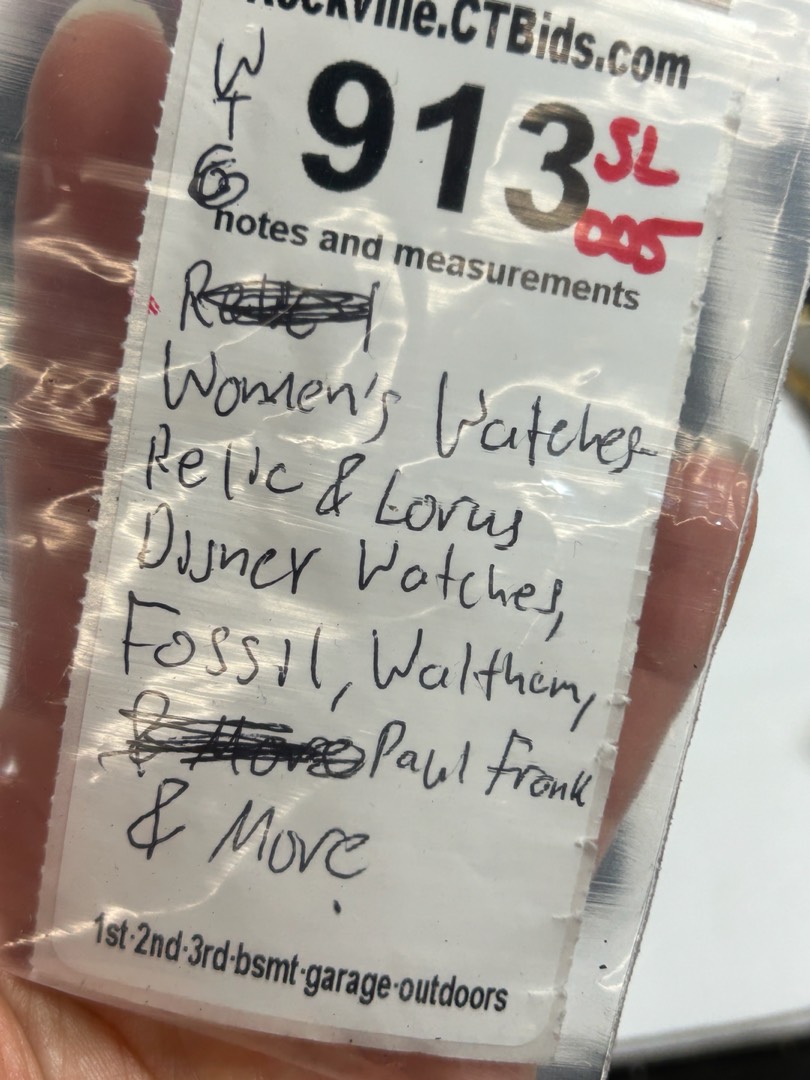 Rockville.CTBids.com
W
T
6
913 SL
005
notes and measurements
Women's Watches-
Relic & Lorus
Disney Watches,
Fossil, Waltham,
Paul Frank
& More
1st·2nd·3rd·bsmt·garage·outdoors